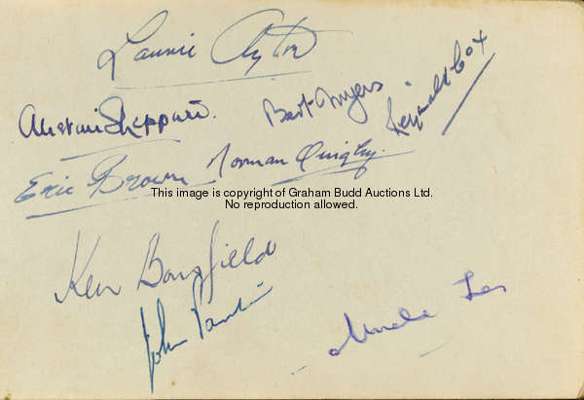 Laurie Ayton
Alistair Sheppard.
Bert Myers
Reginald Cox
Eric Brown
Norman Quigley.
This image is copyright of Graham Budd Auctions Ltd.
No reproduction allowed.
Ken Bousfield
John
Uncle Les